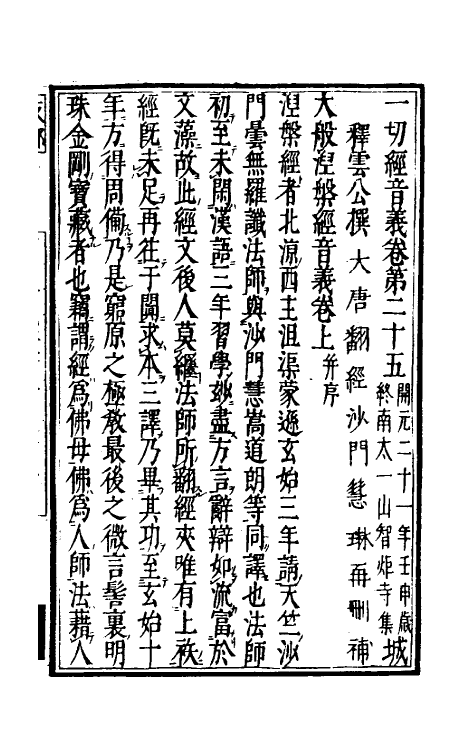 一切經音義卷第二十五 開元二十一年壬申歲 終南太一山智炬寺集 城
釋雲公撰 大唐翻經沙門慧琳再刪補
大般涅槃經音義卷上 并序
涅槃經者北涼西主沮渠蒙遜玄始三年請天竺沙
門曇無羅讖法師與沙門慧嵩道朗等同譯也法師
初至未閑漢語三年習學妙盡方言辭辯如流富於
文藻故此經文後人莫繼法師所翻經夾唯有上袟
經既未足再往于闐求本三譯乃畢其功至玄始十
年方得周備乃是窮原之極教最後之微言髻裏明
珠金剛寶藏者也竊謂經為佛母佛為人師法藉人